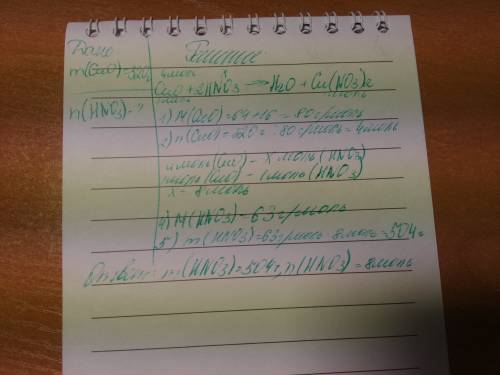 Дано:
Решение
m(CuO)=320г
4 моль x
CuO + 2HNO3 → H2O + Cu(NO3)2
1 моль 1 моль
n(HNO3)-?
1) M(CuO)=64+16=80г/моль
2) n(CuO)=320г:80г/моль=4моль
4 моль(CuO) - x моль(HNO3)
1моль(CuO) - моль(HNO3)
x - 8моль
4) M(HNO3)-63г/моль
5) m(HNO3)=63г/моль·8моль=504г
Ответ: m(HNO3)=504г, n(HNO3)=8моль